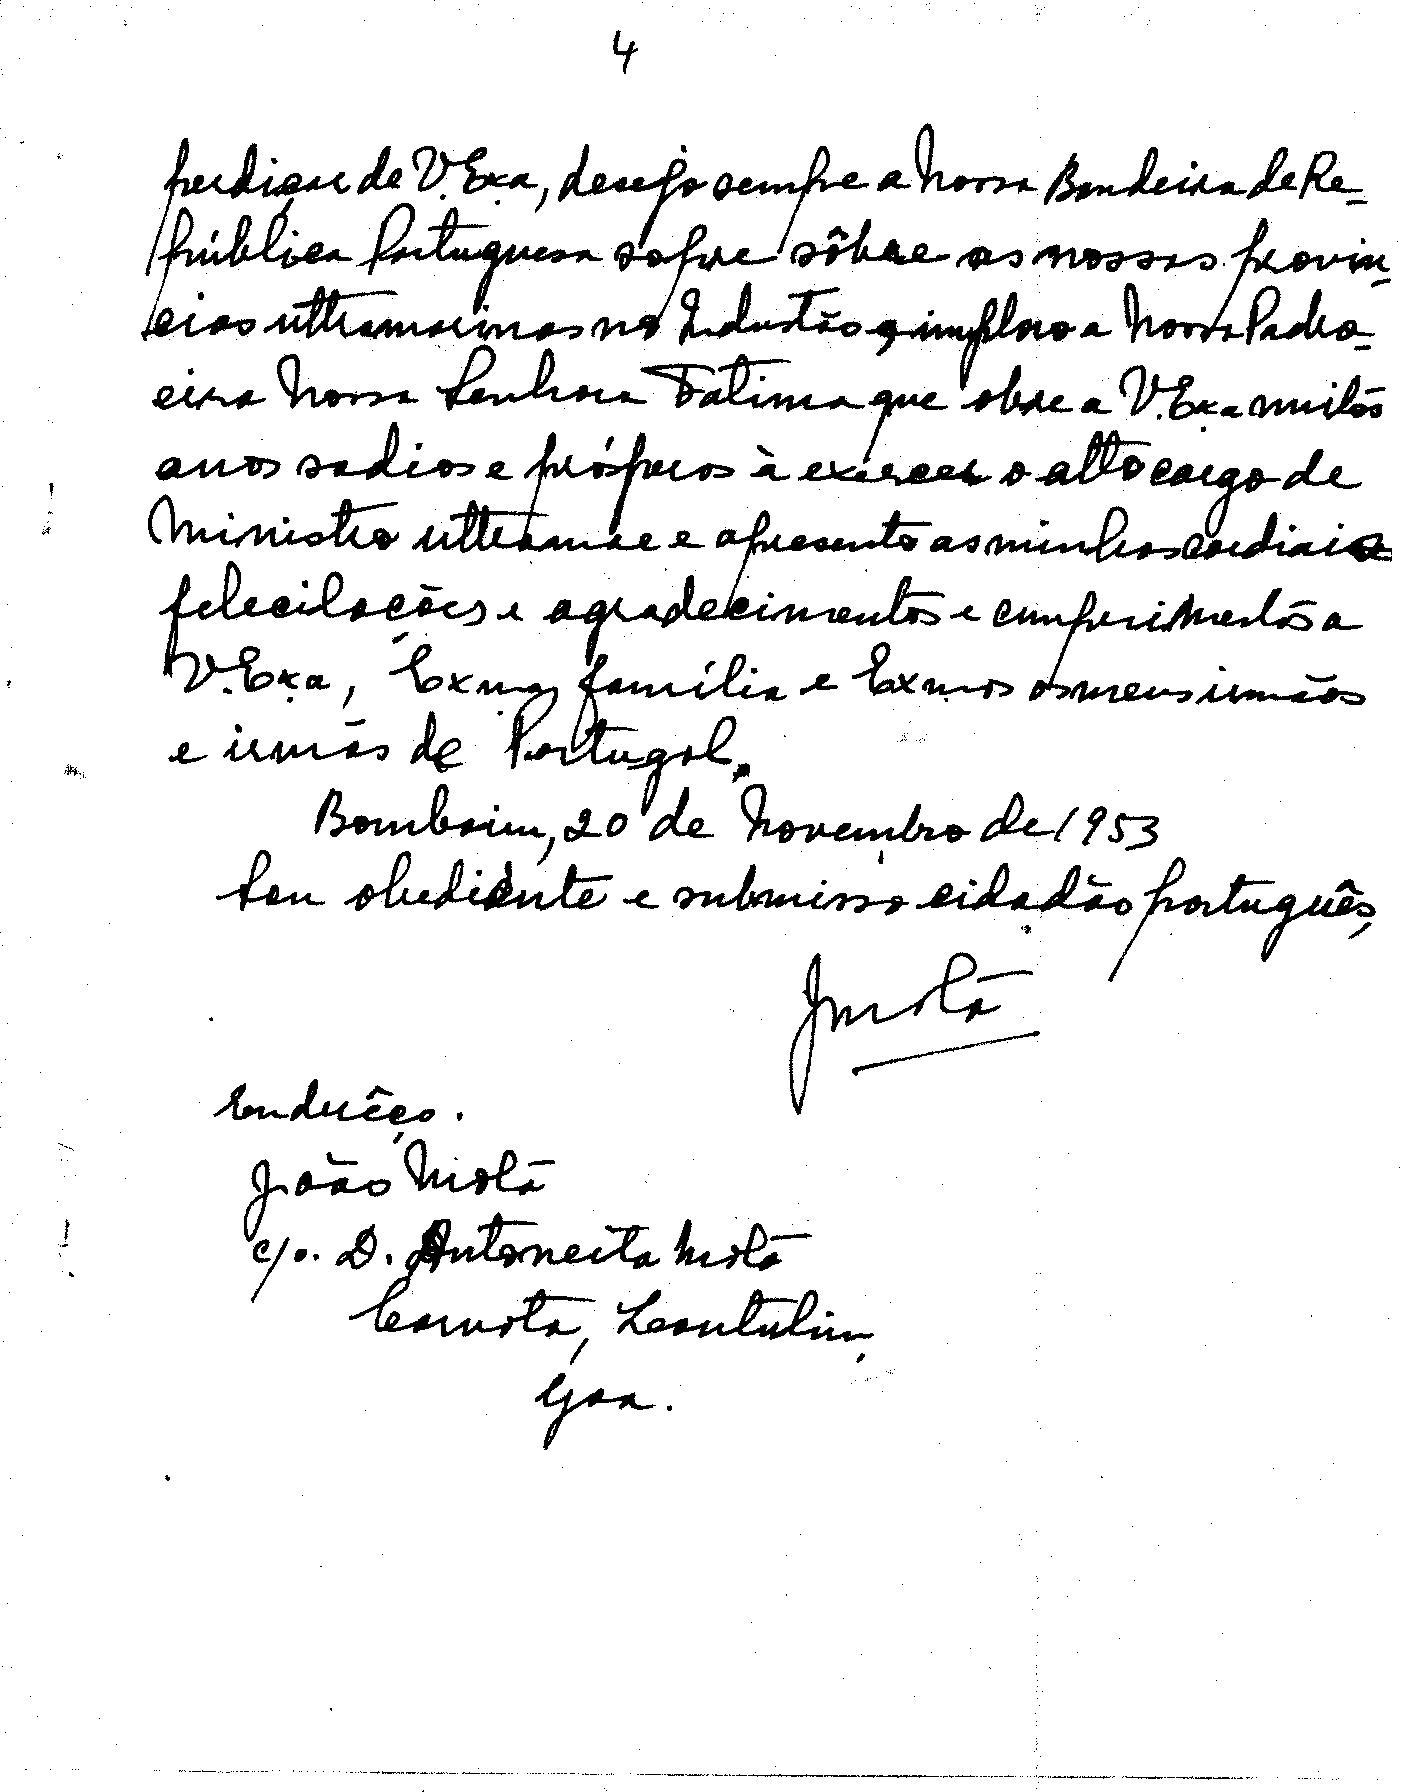 4
perdiçar de V. Exa, desejo sempre a Nossa Bandeira de Re-
pública Portuguesa sopre sôbre as nossas provin-
cias ultramarinas no Industão e imploro a Nossa Padro-
eira Nossa Senhora Fatima que obre a V. Exa muitos
anos sadios e prósperos à exercer o alto cargo de
Ministro ultramar e apresento as minhas cordiais
felecitações e agradecimentos e cumprimentos a
V. Exa, Exma família e Exmos os meus irmãos
e irmãs de Portugal.
Bombaim, 20 de Novembro de 1953
Sou obediente e submisso cidadão português,
JMota
Enderêço.
João Mota
c/o. D. Antoneita Mota
Carvota, Loutulim,
Goa.